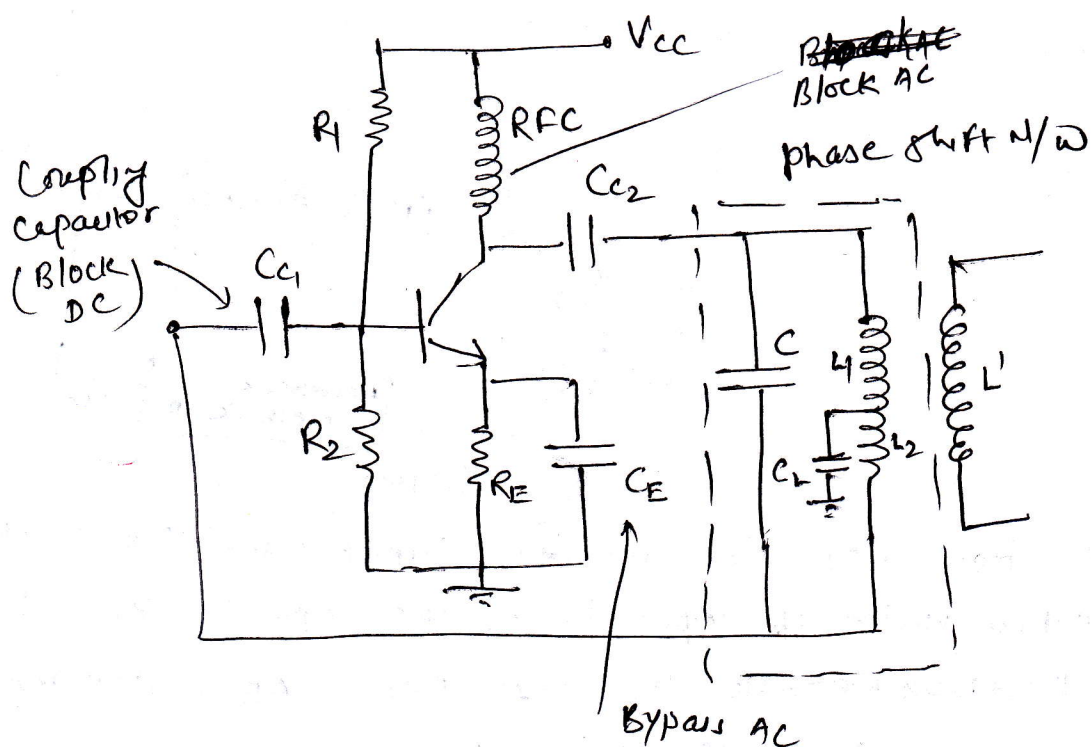 VCC
Block AC
R1
RFC
phase shift N/W
Coupling
capacitor
(Block
DC)
CC1
CC2
C
L1
L'
R2
RE
CE
CL
L2
Bypass AC